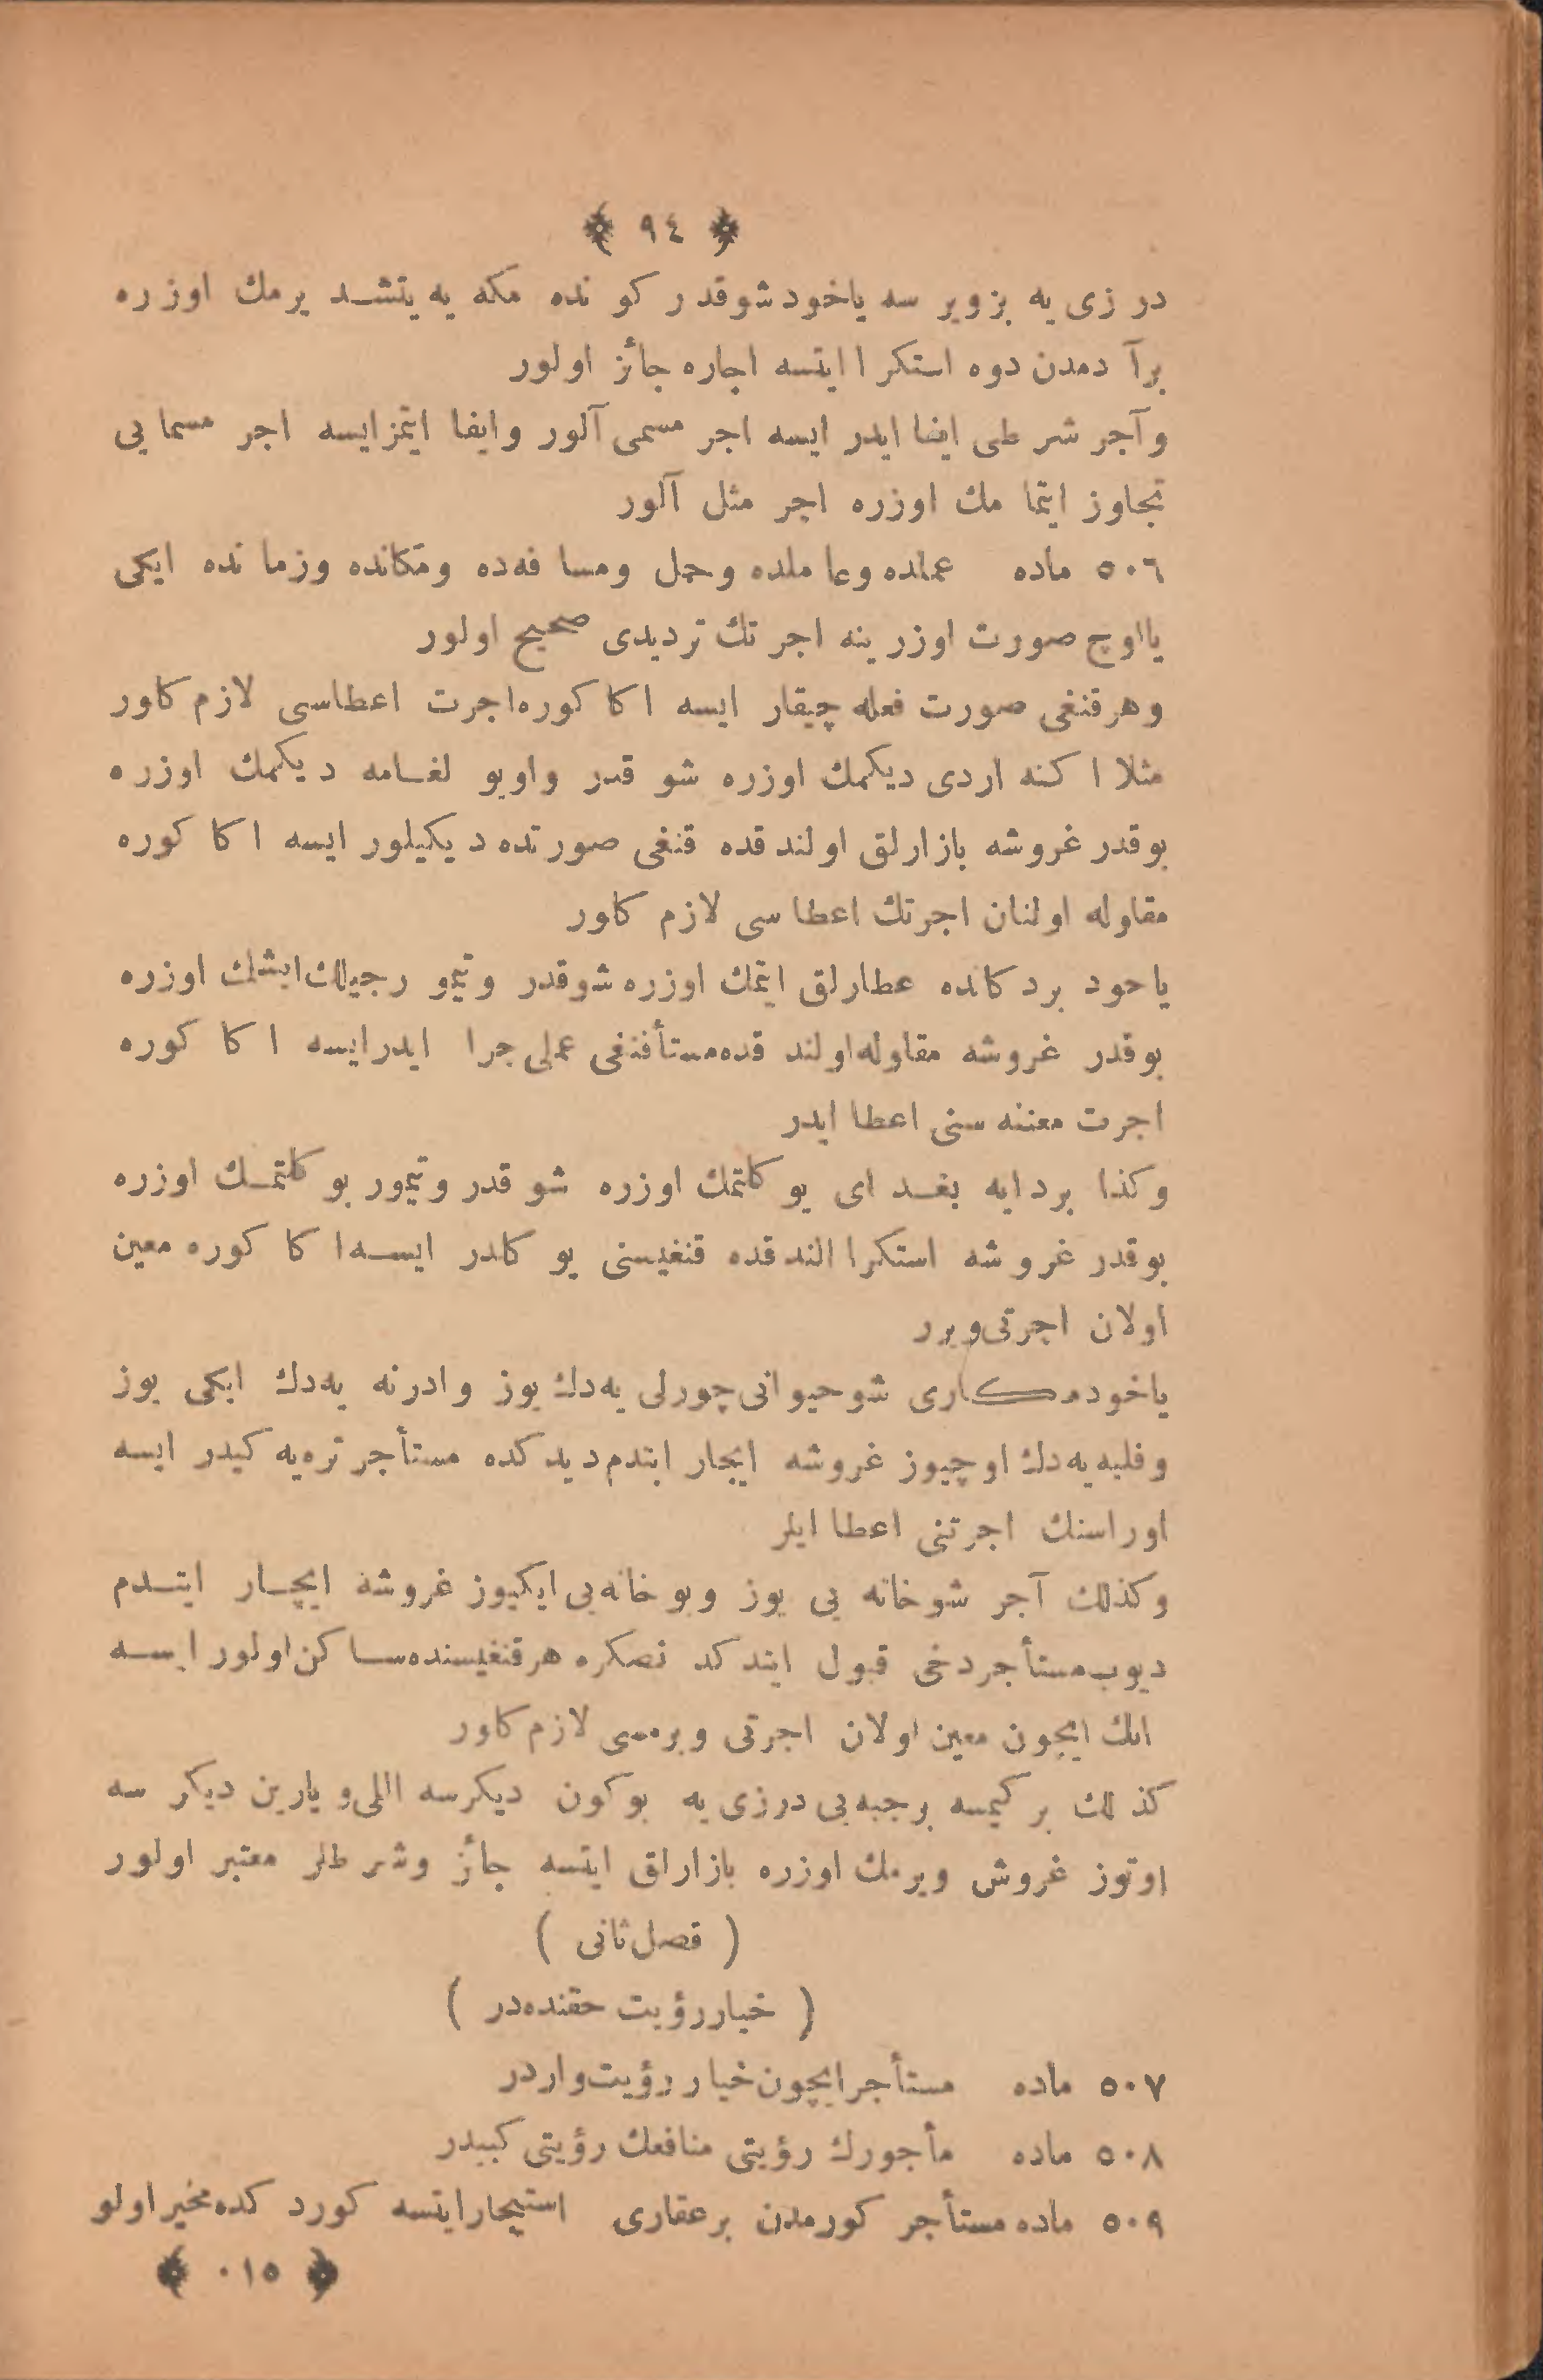 ﴿ ٩٤ ﴾
درزى يه بزويرسه ياخود شوقدر كونده مكه يه يتشديرمك اوزره
برآدمدن دوه استكرا ايتسه اجاره جائز اولور
وآجر شرطى ايفا ايدر ايسه اجر مسمى آلور وايفا ايتمز ايسه اجر مسمايى
تجاوز ايتمامك اوزره اجر مثل آلور
٥٠٦ ماده عملده وعاملده وحمل ومسافه ده ومكانده وزمانده ايكى
يااوچ صورت اوزرينه اجرتك ترديدى صحيح اولور
وهرقنغى صورت فعله چيقار ايسه اكا كوره اجرت اعطاسى لازم كلور
مثلا اكنه اردى ديكمك اوزره شو قدر واويو لغامه ديكمك اوزره
بوقدر غروشه بازارلق اولندقده قنغى صورتده ديكيلور ايسه اكا كوره
مقاوله اولنان اجرتك اعطاسى لازم كلور
ياحود بردكانده عطارلق ايتمك اوزره شوقدر وتيمورجيلك ايشلك اوزره
بوقدر غروشه مقاوله اولندقده مستأقنغى عملى جرا ايدرايسه اكا كوره
اجرت معينه سنى اعطا ايدر
وكذا بردابه بغداى يوكلتمك اوزره شوقدر وتيمور يوكلتمك اوزره
بوقدر غروشه استكرا الندقده قنغيسنى يوكلدر ايسه اكا كوره معين
اولان اجرتى ويرر
ياخود مكارى شوحيوانى چورلى يه دك يوز وادرنه يه دك ايكى يوز
وفلبه يه دك اوچيوز غروشه ايجار ايتدم ديدكده مستأجر نره يه كيدر ايسه
اوراسنك اجرتنى اعطا ايلر
وكذلك آجر شوخانه يى يوز وبوخانه يى ايكيوز غروشه ايجار ايتدم
ديوب مستأجردخى قبول ايتدكد نصكره هرقنغيسنده ساكن اولور ايسه
انك ايچون معين اولان اجرتى ويرمسى لازم كلور
كذلك بر كيمسه برجبه يى درزى يه بوكون ديكرسه اللى ويارين ديكرسه
اوتوز غروش ويرمك اوزره بازارلق ايتسه جائز وشرطلر معتبر اولور
( فصل ثانى )
( خيار رؤيت حقنده در )
٥٠٧ ماده مستأجر ايچون خيار رؤيت واردر
٥٠٨ ماده مأجورك رؤيتى منافعك رؤيتى كبيدر
٥٠٩ ماده مستأجر كورمدن برعقارى استيجار ايتسه كوردكده مخير اولو
﴿ ٠١٥ ﴾